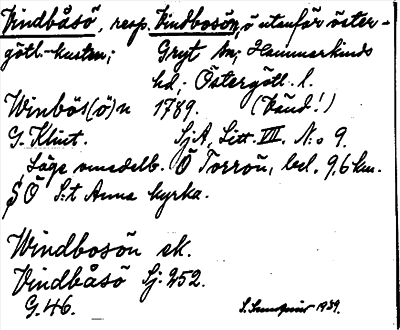 Vindbåsö, resp. Vindbosön, ö utanför öster-
götl.-kusten; Gryt sn; Hammarkinds
hd; Östergötl. l.
Winbös(ö)n 1789. (Känd!)
G. Klint. SjA, Litt. VII. N:o 9.
Läge omedelb. Ö Torrön, bel. 9,6 km.
S Ö S:t Anna kyrka.
Windbosön ek.
Vindbåsö Sj: 252.
G.46. 1939.